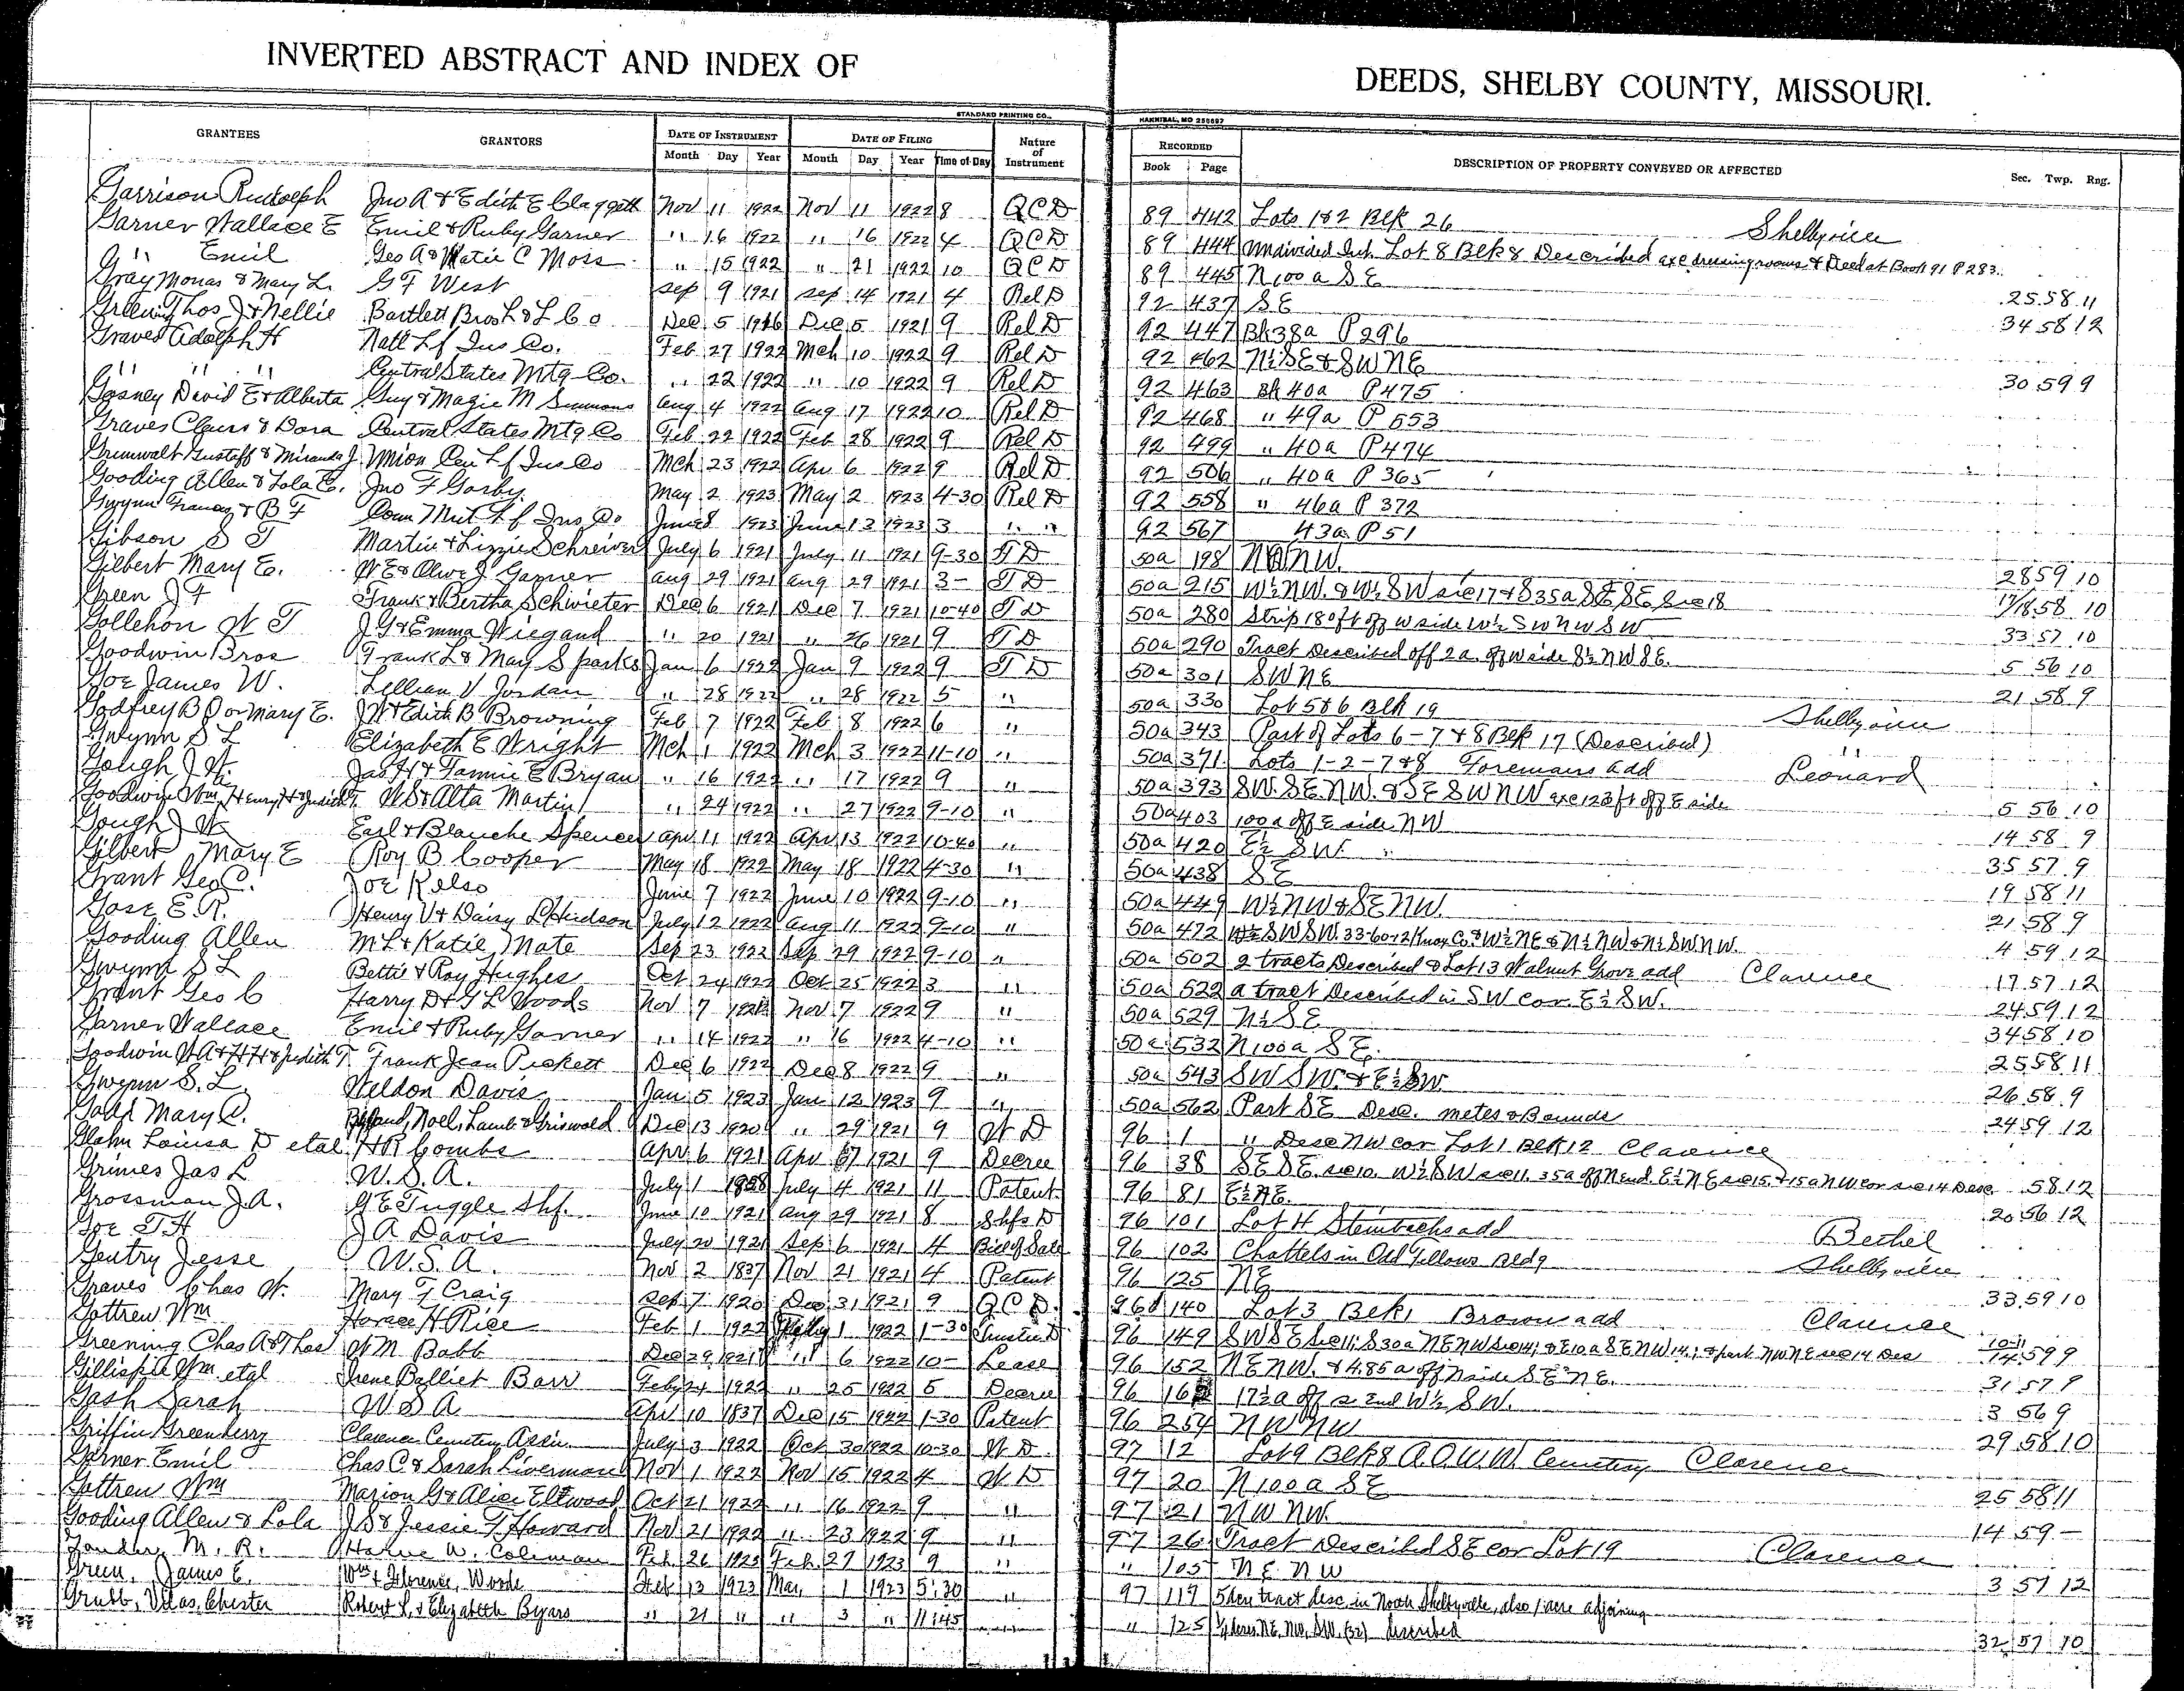 INVERTED ABSTRACT AND INDEX OF DEEDS, SHELBY COUNTY, MISSOURI.
STANDARD PRINTING CO., HANNIBAL, MO 256697
GRANTEES GRANTORS DATE OF INSTRUMENT DATE OF FILING Nature of Instrument RECORDED DESCRIPTION OF PROPERTY CONVEYED OR AFFECTED Sec. Twp. Rng.
Month Day Year Month Day Year Time of Day Book Page
Garrison Rudolph Jno A & Edith E Claggett Nov 11 1922 Nov 11 1922 8 QCD 89 442 Lots 1&2 Blk 26 Shelbyville
Garner Wallace E Emil & Ruby Garner " 16 1922 " 16 1922 4 QCD 89 444 Undivided Int. Lot 8 Blk 8 Described exc dressing rooms & Deed at Book 91 P 283.
" Emil Geo A & Katie C Moss " 15 1922 " 21 1922 10 QCD 89 445 N 100 a SE 25 58 11
Gray Monas & Mary L. G F West Sep 9 1921 Sep 14 1921 4 Rel D 92 437 SE 34 58 12
Greening Thos J & Nellie Bartlett Bros L & L Co Dec 5 1916 Dec 5 1921 9 Rel D 92 447 Bk 38a P 296
Graves Adolph H Natl Lf Ins Co. Feb 27 1922 Mch 10 1922 9 Rel D 92 462 N½ SE & SW NE 30 59 9
" " " Central States Mtg Co. " 22 1922 " 10 1922 9 Rel D 92 463 Bk 40a P 475
Gosney David E & Alberta Guy & Magie M Simmons Aug 4 1922 Aug 17 1922 10 Rel D 92 468 " 49a P 553
Graves Claus & Dora Central States Mtg Co Feb 22 1922 Feb 28 1922 9 Rel D 92 499 " 40a P 474
Grumwalt Gustaff & Miranda J Union Cen Lf Ins Co Mch 23 1922 Apr 6 1922 9 Rel D 92 506 " 40a P 365
Gooding Allen & Lola E. Jno F Gorby. May 2 1923 May 2 1923 4-30 Rel D 92 558 " 46a P 372
Gwynn Frances & B F Conn Mut Lf Ins Co June 8 1923 June 12 1923 3 " " 92 567 43a P 51
Gibson S T Martin & Lizzie Schreiver July 6 1921 July 11 1921 9-30 T D 50a 198 NW. 28 59 10
Gilbert Mary E. W E & Olive J Garner Aug 29 1921 Aug 29 1921 3- T D 50a 215 W½ NW. & W½ SW sec 17 & S 35a SE SE Sec 18 17/18 58 10
Green J F Frank & Bertha Schwieter Dec 6 1921 Dec 7 1921 10-40 T D 50a 280 Strip 180 ft off W side W½ SW NW SW 33 57 10
Gollehon W T J G & Emma Wiegand " 20 1921 " 26 1921 9 T D 50a 290 Tract Described off 2a. off W side S½ NW SE. 5 56 10
Goodwin Bros Frank L & May Sparks Jan 6 1922 Jan 9 1922 9 T D 50a 301 SW NE 21 58 9
Goe James W. Lillian V Jordan " 28 1922 " 28 1922 5 " 50a 330 Lot 5&6 Blk 19 Shelbyville
Godfrey B D or Mary E. J W & Edith B Browning Feb 7 1922 Feb 8 1922 6 " 50a 343 Part of Lots 6-7&8 Blk 17 (Described) "
Gwynn S L Elizabeth E Wright Mch 1 1922 Mch 3 1922 11-10 " 50a 371 Lots 1-2-7&8 Foremans add Leonard
Gough J W Jas H & Fannie E Bryan " 16 1922 " 17 1922 9 " 50a 393 SW. SE. NW. & SE SW NW exc 123 ft off E side 5 56 10
Goodwin Wm, Henry H & Judith T. W S & Alta Martin " 24 1922 " 27 1922 9-10 " 50a 403 100 a off E side NW 14 58 9
Gough J W Earl & Blanche Spencer Apr 11 1922 Apr 13 1922 10-40 " 50a 420 E½ SW. 35 57 9
Gilbert Mary E Roy B Cooper May 18 1922 May 18 1922 4-30 " 50a 438 SE 19 58 11
Grant Geo C. Joe Kelso June 7 1922 June 10 1922 9-10 " 50a 449 W½ NW & SE NW. 21 58 9
Gose E. R. Henry V & Daisy L Hudson July 12 1922 Aug 11 1922 9-10 " 50a 472 W½ SW SW. 33-60-12 Knox Co & W½ NE & N½ NW & N½ SW NW. 4 59 12
Gooding Allen M L & Katie Nate Sep 23 1922 Sep 29 1922 9-10 " 50a 502 2 tracts Described & Lot 13 Walnut Grove add Clarence 17 57 12
Gwynn S L Bettie & Roy Hughes Oct 24 1922 Oct 25 1922 3 " 50a 522 a tract Described in SW cor E½ SW. 24 59 12
Grant Geo C Harry D & G L Woods Nov 7 1922 Nov 7 1922 9 " 50a 529 N½ SE 34 58 10
Garner Wallace Emil & Ruby Garner " 14 1922 " 16 1922 4-10 " 50a 532 N 100 a SE. 25 58 11
Goodwin W A & H H & Judith T. Frank Jean Pickett Dec 6 1922 Dec 8 1922 9 " 50a 543 SW SW. & E½ SW 26 58 9
Gwynn S. L. Weldon Davis Jan 5 1923 Jan 12 1923 9 " 50a 562 Part SE Desc. metes & Bounds 24 59 12
Mary C. Noel, Lamb & Griswold Dec 13 1920 " 29 1921 9 W D 96 1 " Desc NW cor Lot 1 Blk 12 Clarence
Glahn Louisa D etal H R Combs Apr 6 1921 Apr 7 1921 9 Decree 96 38 SE SE. sec 10. W½ SW sec 11. 35a off N end E½ NE sec 15. & 15a NW cor sec 14 Desc. 58 12
Grimes Jas L U. S. A. July 1 1858 July 4 1921 11 Patent 96 81 E½ NE. 20 56 12
Grossman J. A. G E Tuggle Shf. June 10 1921 Aug 29 1921 8 Shfs D 96 101 Lot H Steinbachs add Bethel
Goe T H J A Davis July 20 1921 Sep 6 1921 4 Bill of Sale 96 102 Chattels in Odd Fellows Bldg Shelbyville
Gentry Jesse U. S. A. Nov 2 1837 Nov 21 1921 4 Patent 96 125 NE 33 59 10
Graves Chas W. Mary F Craig Sep 7 1920 Dec 31 1921 9 QCD. 96 140 Lot 3 Blk 1 Browns add Clarence
Gottrew Wm Horace H Rice Feb 1 1922 Feby 1 1922 1-30 Trustee D 96 149 SW SE Sec 11; S 30a NE NW Sec 14; & E 10 a SE NW 14; & part NW NE sec 14 Des 10-11 14 59 9
Greening Chas A & Thos W M Babb Dec 29 1921 " 6 1922 10- Lease 96 152 NE NW. & 4.85 a off N side SE NE. 31 57 9
Gillispie Wm. etal Irene Balliet Barr Feby 24 1922 " 25 1922 5 Decree 96 162 17½ a off S end W½ SW. 3 56 9
Gash Sarah U S A Apr 10 1837 Dec 15 1922 1-30 Patent 96 254 NW NW 29 58 10
Griffin Greenberry Clarence Cemetery Assn. July 3 1922 Oct 30 1922 10-30 W D. 97 12 Lot 9 Blk 8 A. O. U. W. Cemetery Clarence
Garner Emil Chas C & Sarah Liverman Nov 1 1922 Nov 15 1922 4 W D 97 20 N 100 a SE 25 58 11
Gottrew Wm Marion G & Alice Ellwood Oct 21 1922 " 16 1922 9 " 97 21 NW NW. 14 59 -
Gooding Allen & Lola J S & Jessie F Howard Nov 21 1922 " 23 1922 9 " 97 26 Tract Described SE cor Lot 19 Clarence
M. R. W. Coleman Feb. 26 1923 Feb. 27 1923 9 " " 105 NE. NW 3 57 12
Green, James E. Wm & Florence, Woods Feb 13 1923 Mar, 1 1923 5:30 " 97 119 tract desc. in North Shelbyville, also 1 acre adjoining
Grubb, Vilas, Chester Robert L. & Elizabeth Byars " 21 " " 3 " 11:45 " " 125 ¼ acres NE, NW, SW. (32) described 32 57 10